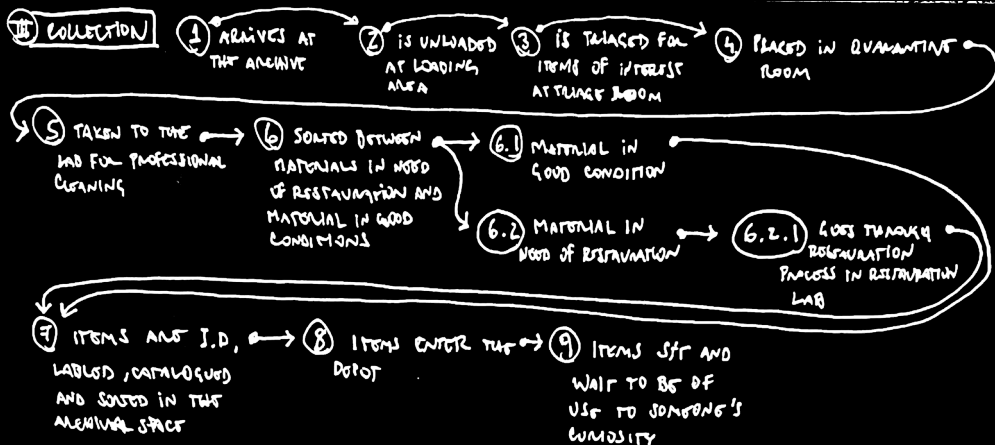 III COLLECTION
1 ARRIVES AT
THE ARCHIVE
2 IS UNLOADED
AT LOADING
AREA
3 IS TRIAGED FOR
ITEMS OF INTEREST
AT TRIAGE ROOM
4 PLACED IN QUARANTINE
ROOM
5 TAKEN TO THE
LAB FOR PROFESSIONAL
CLEANING
6 SORTED BETWEEN
MATERIALS IN NEED
OF RESTAURATION AND
MATERIAL IN GOOD
CONDITIONS
6.1 MATERIAL IN
GOOD CONDITION
6.2 MATERIAL IN
NEED OF RESTAURATION
6.2.1 GOES THROUGH
RESTAURATION
PROCESS IN RESTAURATION
LAB
7 ITEMS ARE I.D,
LABLED, CATALOGUED
AND SORTED IN THE
ARCHIVAL SPACE
8 ITEMS ENTER THE
DEPOT
9 ITEMS SIT AND
WAIT TO BE OF
USE TO SOMEONE'S
CURIOSITY